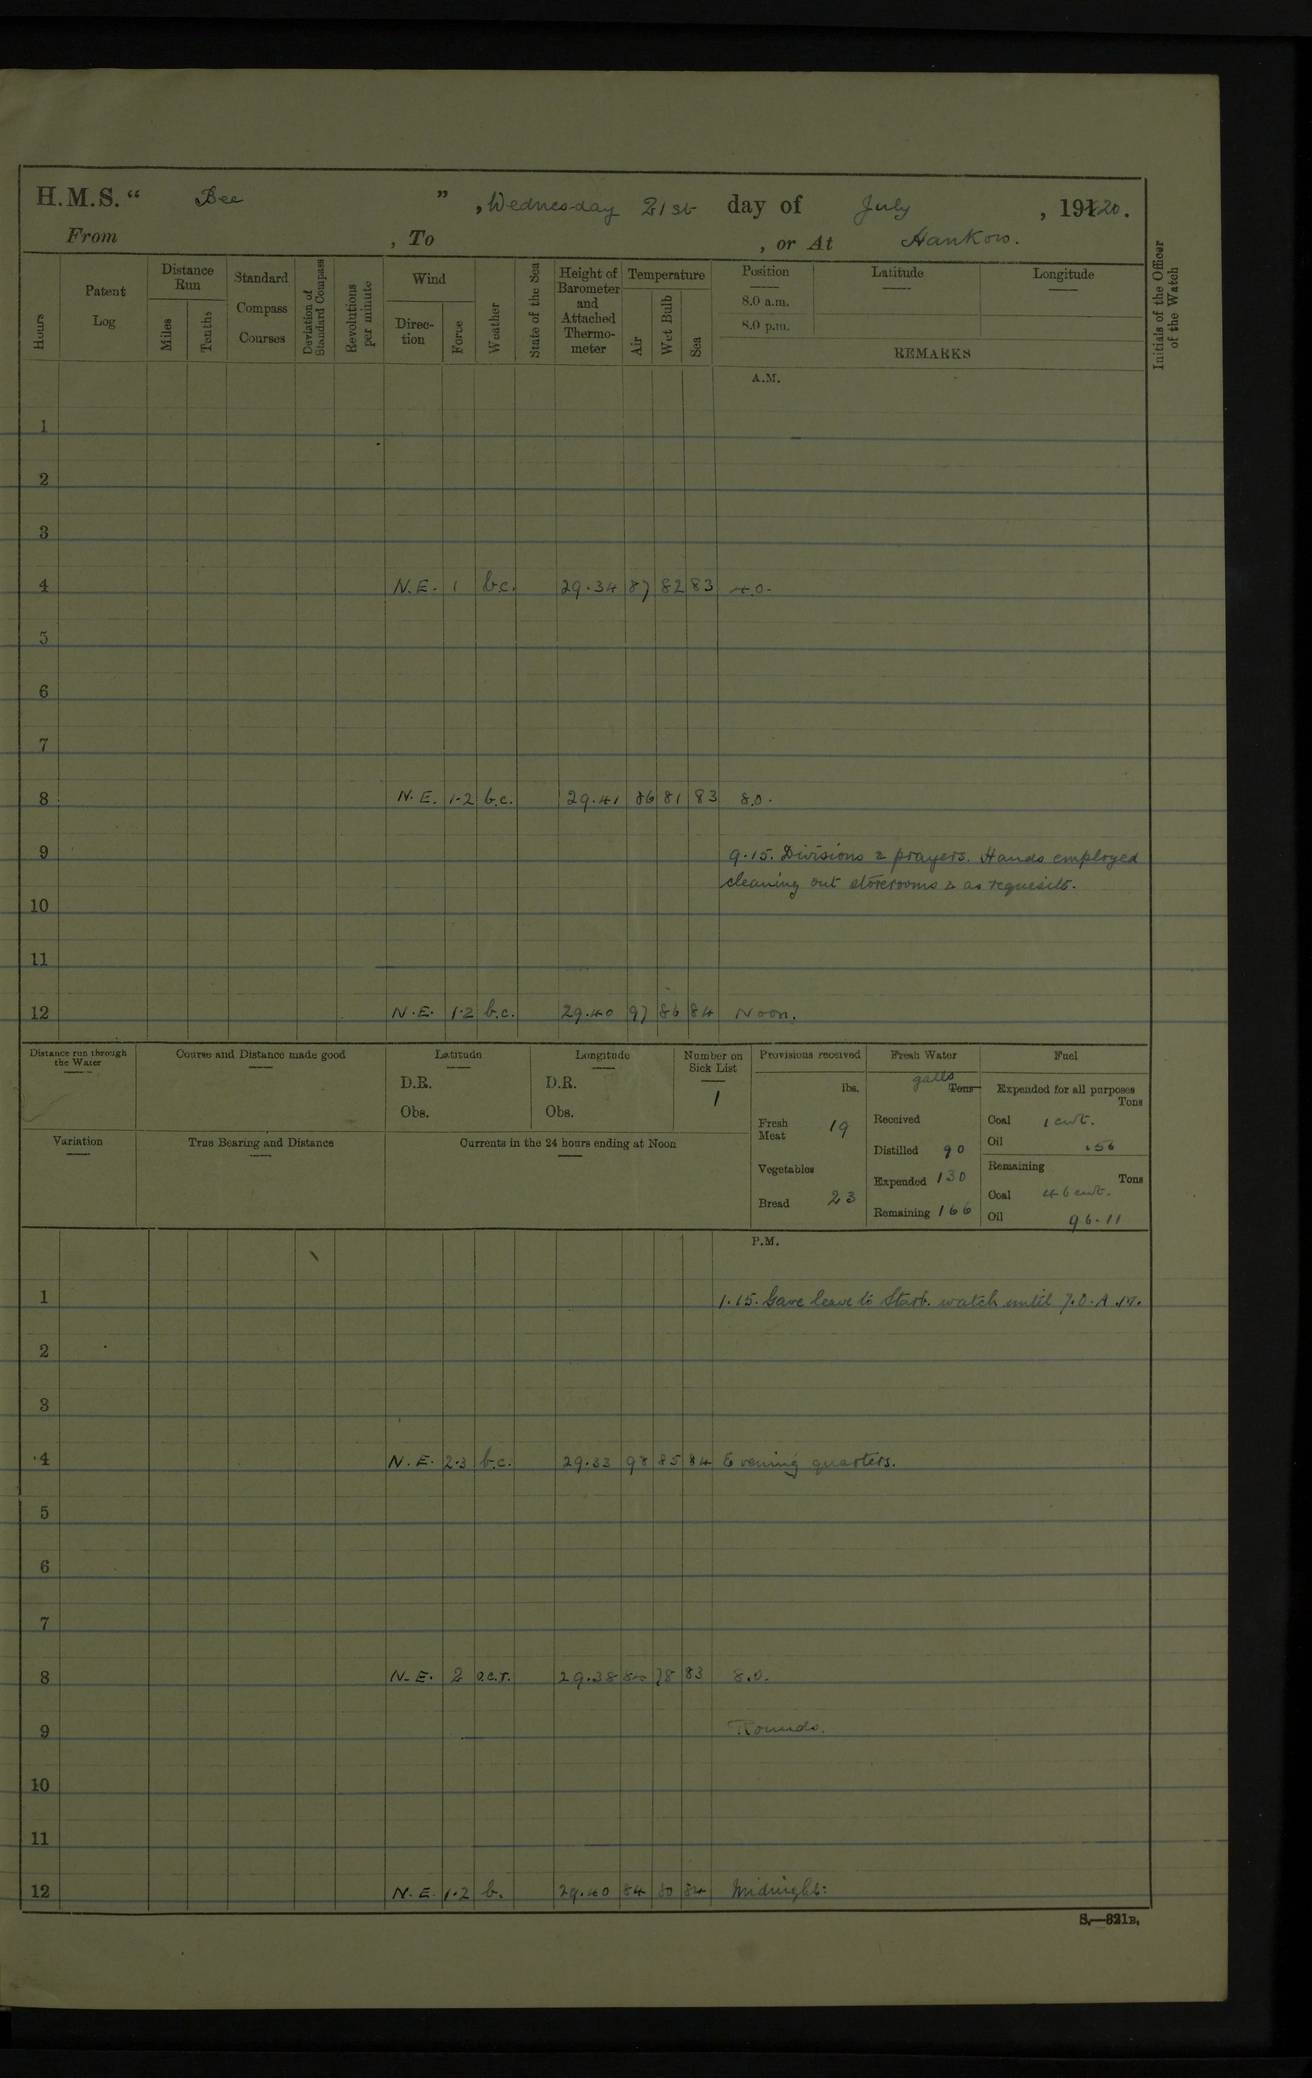 H.M.S. “ Bee ” , Wednesday 21st day of July , 1920.
From , To , or At Hankow.
Hours
Patent Log
Distance Run
Miles
Tenths
Standard Compass Courses
Deviation of Standard Compass
Revolutions per minute
Wind
Direction
Force
Weather
State of the Sea
Height of Barometer and Attached Thermometer
Temperature
Air
Wet Bulb
Sea
Position
8.0 a.m.
8.0 p.m.
Latitude
Longitude
REMARKS
Initials of the Officer of the Watch
A.M.
1
2
3
4 N.E. 1 b.c. 29.34 87 82 83 4.0.
5
6
7
8 N.E. 1.2 b.c. 29.41 86 81 83 8.0.
9 9.15. Divisions & prayers. Hands employed
cleaning out storerooms & as requisite.
10
11
12 N.E. 1.2 b.c. 29.40 97 86 84 Noon.
Distance run through the Water
Course and Distance made good
Latitude
D.R.
Obs.
Longitude
D.R.
Obs.
Number on Sick List
1
Variation
True Bearing and Distance
Currents in the 24 hours ending at Noon
Provisions received
lbs.
Fresh Meat 19
Vegetables
Bread 23
Fresh Water
galls Tons
Received
Distilled 90
Expended 130
Remaining 166
Fuel
Expended for all purposes
Tons
Coal 1 cwt.
Oil .56
Remaining
Tons
Coal 46 cwt.
Oil 96.11
P.M.
1 1.15. Gave leave to Starb. watch until 7.0. A.M.
2
3
4 N.E. 2.3 b.c. 29.33 98 85 84 Evening quarters.
5
6
7
8 N.E. 2 o.c.r. 29.38 84 78 83 8.0.
9 Rounds.
10
11
12 N.E. 1.2 b. 29.40 84 80 84 Midnight:
S.—321B.